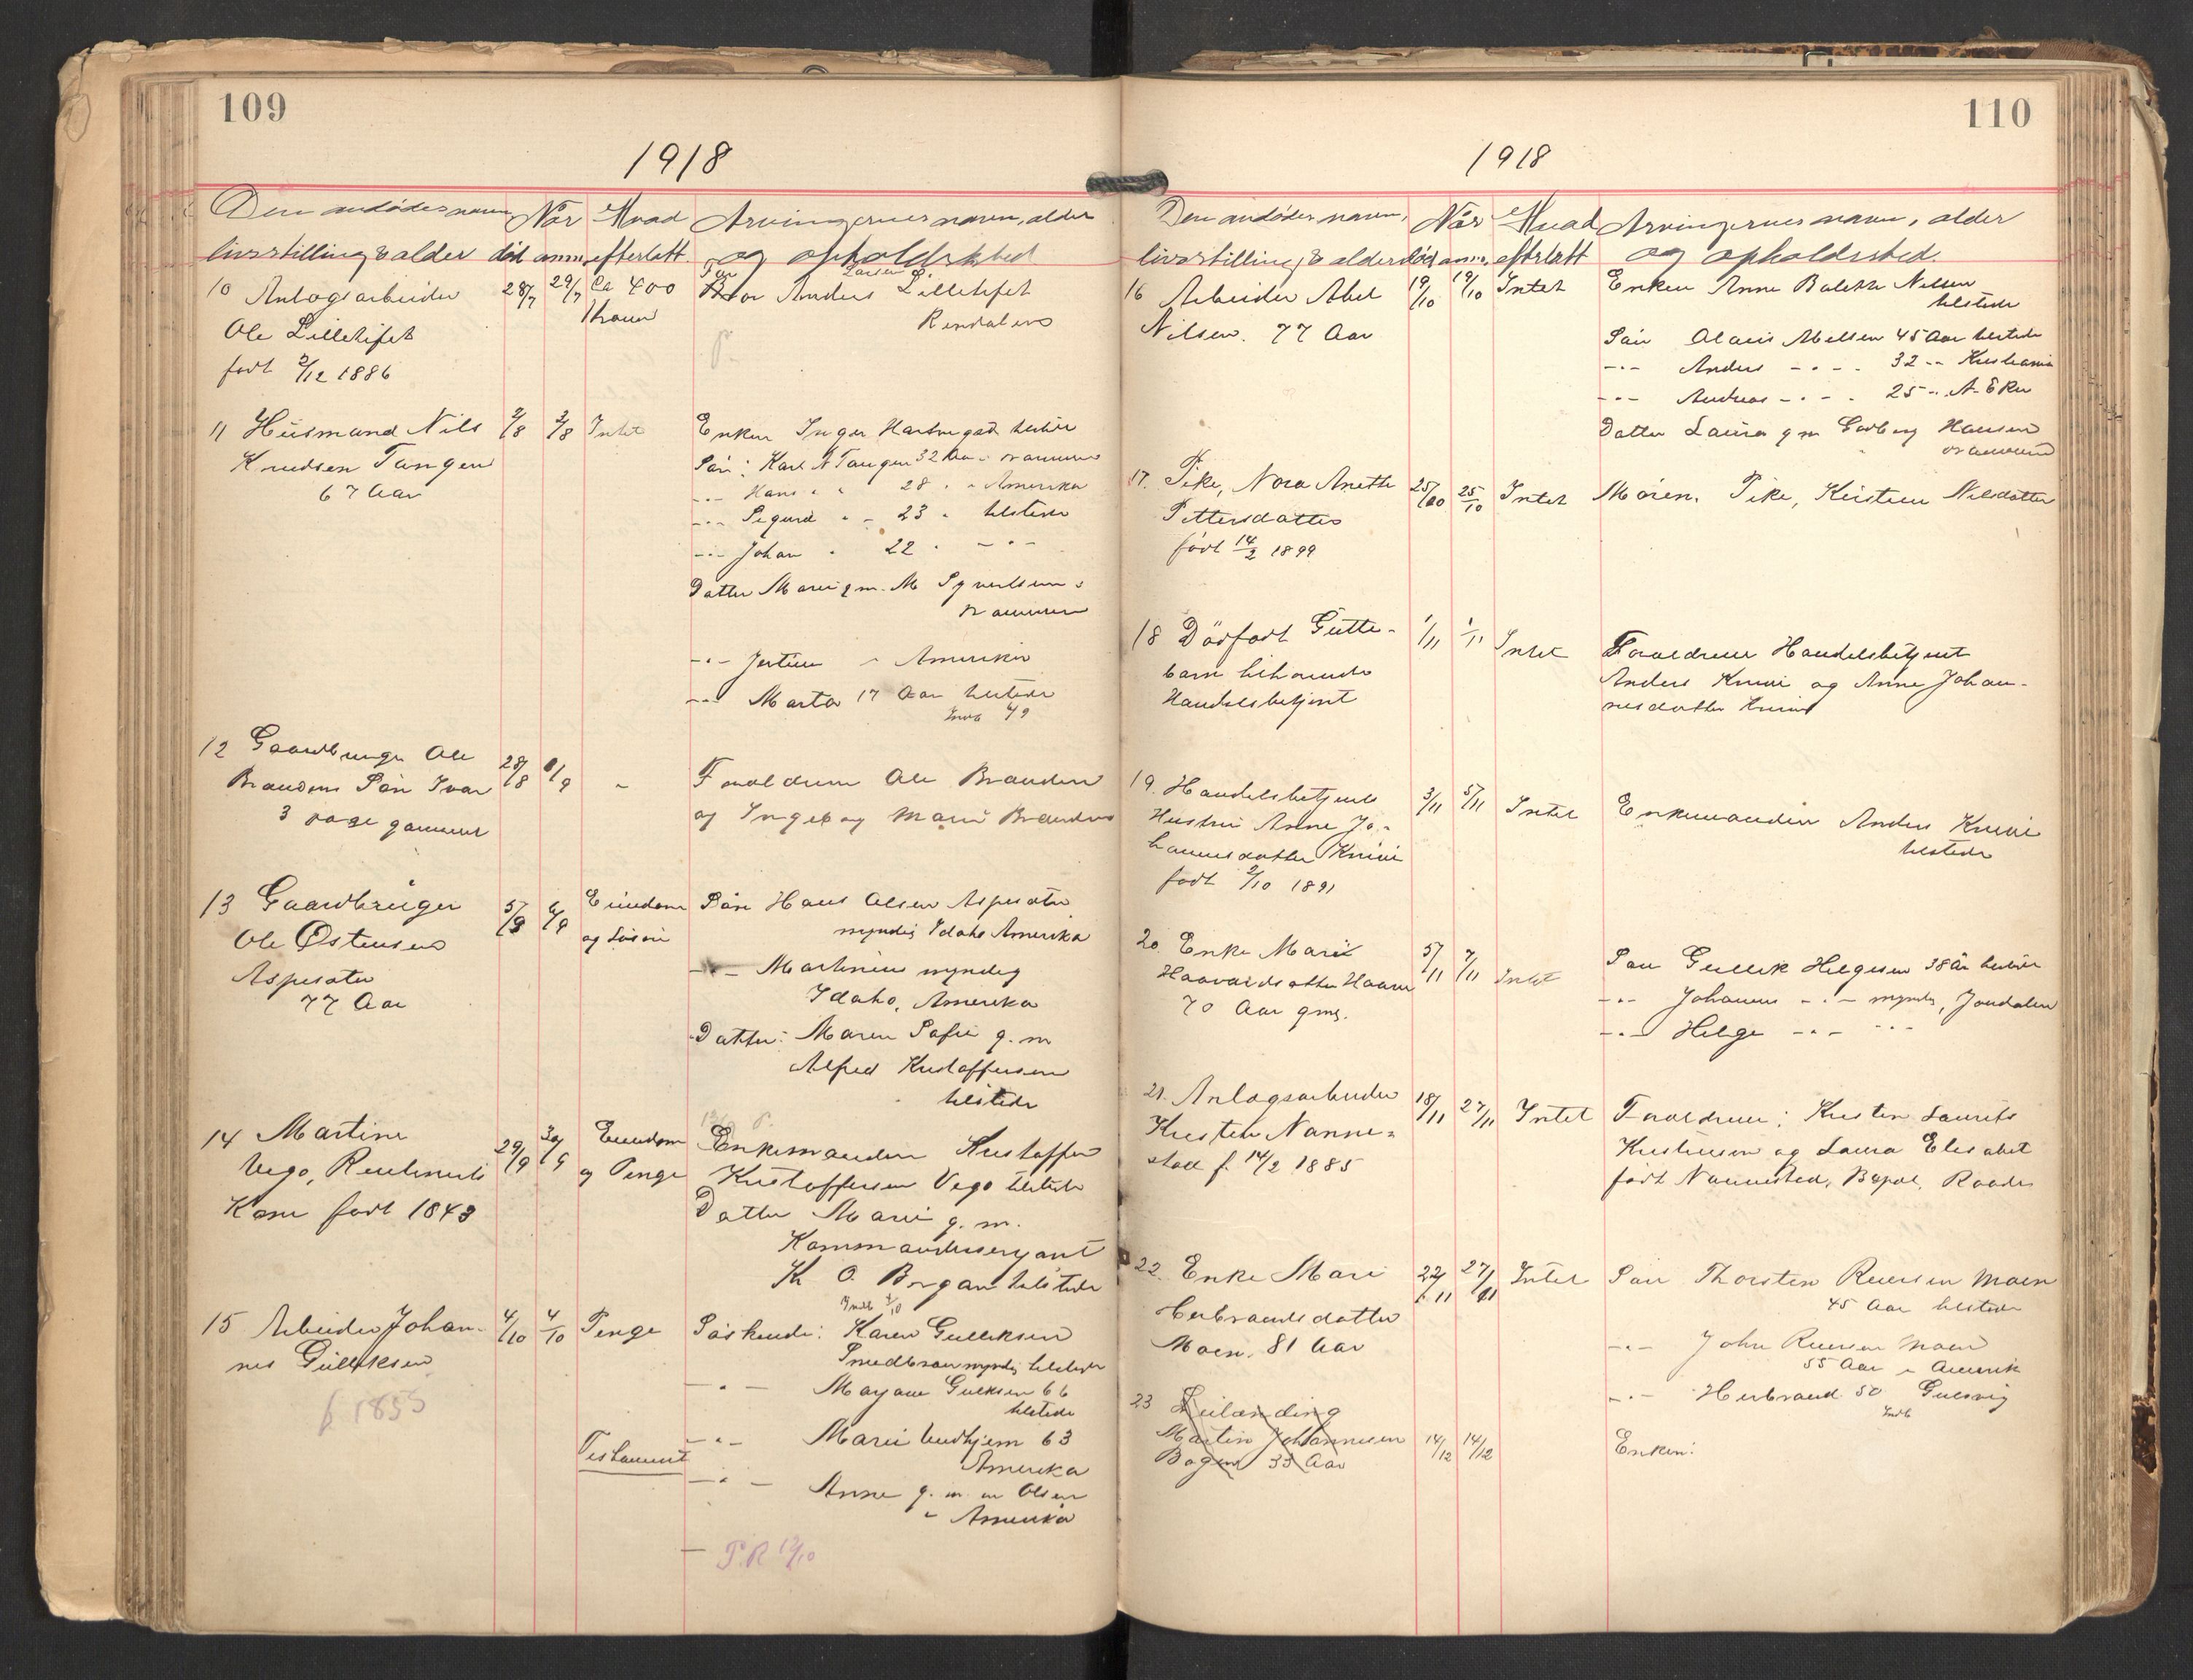 109
1918
Den avdødes navn,
livsstilling & alder
Når
død anm.
Hvad
efterlatt.
Arvingernes navn, alder
og opholdssted
10 Anlægsarbeider
Ole Lilletifet
født 2/12 1886
28/7 29/7 Ca 400
Kroner
Far Anders Larsen Lilletifet
Rendalen
11 Husmand Nils
Knudsen Tangen
67 Aar
2/8 3/8 Intet
Enken Inger
Søn: Karl N Tangen 32 Aar
-"- Hans " " 28 " Amerika
-"- Sigurd " " 23 " tilstede
-"- Johan " 22 " -"-
Datter Marie g.m. M
-"- Amerika
-"- Marta 17 Aar tilstede
12 Gaardbruger Ole
Brandens Søn Ivar
3 dage gammel
28/8 1/9 "
Forældrene Ole Branden
og Ingeborg Marie Branden
13 Gaardbruger
Ole Østensen
Aspesater
77 Aar
5/9 6/9 Eiendom
og Løsøre
Søn Hans Olsen Aspesater
myndig Idaho Amerika
-"- Martinius myndig
Idaho, Amerika
Datter: Maren Sofie g. m
Alfred Kristoffersen
tilstede
14 Martine
Vego,
Kone født 1843
29/9 30/9 Eiendom
og Penge
Enkemanden Kristoffer
Kristoffersen Vego tilstede
Datter Marie g. m.
Kommandersergant
K O. Borgan tilstede
15 Arbeider Johan-
nes Gulliksen
f 1855
4/10 4/10 Penge
Testament
Søskende: Karen Gulliksen
Smedbraaten myndig tilstede
-"- Mayane Gulliksen 66
tilstede
-"- Marie 63
Amerika
-"- Anne g. m en Olsen
i Amerika
P.R 12/10
110
1918
Den avdødes navn,
livsstilling & alder
Når
død anm.
Hvad
efterlatt
Arvingernes navn, alder
og opholdssted.
16 Arbeider Abel
Nilsen. 77 Aar
19/10 19/10 Intet
Enken Anne Nilsen
tilstede
Søn Olaus Nilsen 45 Aar tilstede
-"- Anders -"- 32 -"- Kristiania
-"- Andreas -"- 25 -"- A. Eker
Datter Laura g m Hansen
17. Pike, Nora Anette
Pettersdatter
født 14/2 1899
25/10 25/10 Intet
Moren, Pike, Kristine Nilsdatter
18 Dødfødt Gutte-
barn tilhørende
Handelsbetjent
1/11 1/11 Intet
Forældrene Handelsbetjent
Anders Knive og Anne Johan-
nesdatter Knive
19. Handelsbetjents
Hustru Anne Jo-
hannesdatter Knive
født 2/10 1891
3/11 5/11 Intet
Enkemanden Anders Knive
tilstede
20 Enke Mari
Haavardsdatter
70 Aar gml.
5/11 7/11 Intet
Søn Gullik Helgesen 38 År
-"- Johannes -"- myndig, Jondalen
-"- Helge -"- -"-
21. Anlægsarbeider
Kristen Nanne-
stad f. 14/2 1885
18/11 27/11 Intet
Forældrene: Kristen Laurits
Kristensen og Laura Elisabet
født Nannestad, Raade
22. Enke Mari
Herbrandsdatter
Moen. 81 Aar
22/11 27/11 Intet
Søn Thorsten Reiersen Moen
45 Aar tilstede
-"- John Reiersen Moen
55 Aar i Amerik
-"- Herbrand 50 Gulsvig
23 Leilænding
Martin Johannesen
Bogen 33 Aar
14/12 14/12
Enken: